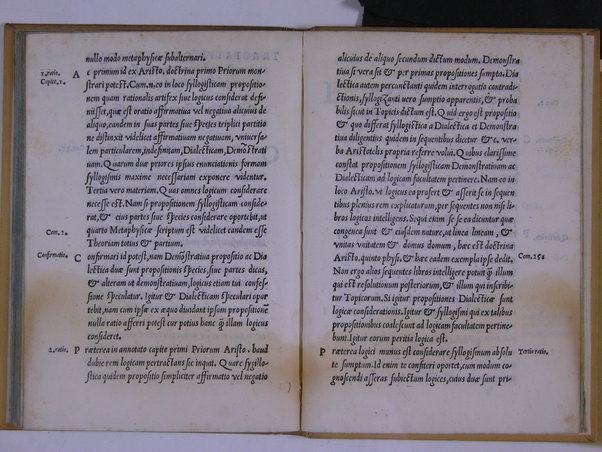 nullo modo metaphysicæ subalternari.
1.ratio. A c primum id ex Aristo. doctrina primo Priorum mon-
Capite.1. strari potest. Cum.n.eo in loco syllogisticam propositio-
nem quam rationalis artifex siue logicus considerat defi-
nisset, quæ est oratio affirmatiua vel negatiua alicuius de
aliquo, eandem in suas partes siue species triplici partitio
ne distinxit videlicet affirmatiuam negatiuam, vniuersa-
lem particularem, indefinitam, Dialecticam, Demostrati
uam. Quarum duæ priores ipsius enunciationis formam
syllogismis maxime necessariam exponere videntur.
Tertia vero materiam. Quas omnes logicum considerare
necesse est. Nam si propositionem syllogisticam conside-
rat, & eius partes siue species considerare oportebit, ut
Com.2. quarto Metaphysicæ scriptum est videlicet eandem esse
Theoriam totius & partium.
Confirmatio. C onfirmari id potest, nam Demostratiua propositio ac Dia
lectica duæ sunt propositionis species, siue partes dicas,
& alteram ut demonstratiuam, logicus etiam tui confes-
sione speculatur. Igitur & Dialecticam speculari opor
tebit, nam cum ipsæ ex æquo diuidant ipsam propositionē
nulla ratio afferri potest cur potius hanc q̃ illam logicus
consideret.
2.ratio. P ræterea in annotato capite primi Priorum Aristo. haud
dubie rem logicam pertractans sic inquit. Quare syllogi-
stica quidem propositio simpliciter affirmatio vel negatio
alicuius de aliquo secundum dictum modum. Demonstra
tiua si vera sit & per primas propositiones sumpta. Dia
lectica autem percunctanti quidem interrogatio contradi-
ctionis, syllogizanti uero sumptio apparentis, & proba
bilis sicut in Topicis dictum est. Quid ergo est propositio
& quo differat syllogistica a Dialectica et Demonstra
tiua diligentius quidem in sequentibus dicetur & c. verba
Aristotelis propria referre volui. Quibus clarissime
constat propositionem syllogisticam Demonstratiuam ac
Dialecticam ad logicam facultatem pertinere. Nam eo in
loco Aristo. ut logicus ea profert & asserit se in sequen
tibus plenius rem explicaturum, per sequentes non nisi li-
bros logicos intelligens. Sequi enim se se ea dicuntur quæ
congenea sunt & eiusdem naturæ, ut linea lineam, &
vnitas vnitatem & domus domum, hæc est doctrina
Aristo. quinto phys. & hæc eadem exempla ipse dedit. Com.256
Non ergo alios sequentes libros intellegere potuit q̃ illum
qui est resolutionum posteriorum, & illum qui inscribi-
tur Topicorum. Si igitur propositiones Dialecticæ sunt
logicæ considerationis. Igitur & syllogismi qui ex talibus
propositionibus coalescunt ad logicam facultatem pertine-
bunt. Igitur eorum peritia logica est.
P ræterea logici munus est considerare syllogismum absolu Tertia ratio.
te sumptum. Id enim te confiteri oportet, cum modum co-
gnoscendi asseras subiectum logices, cuius duæ sunt pri-